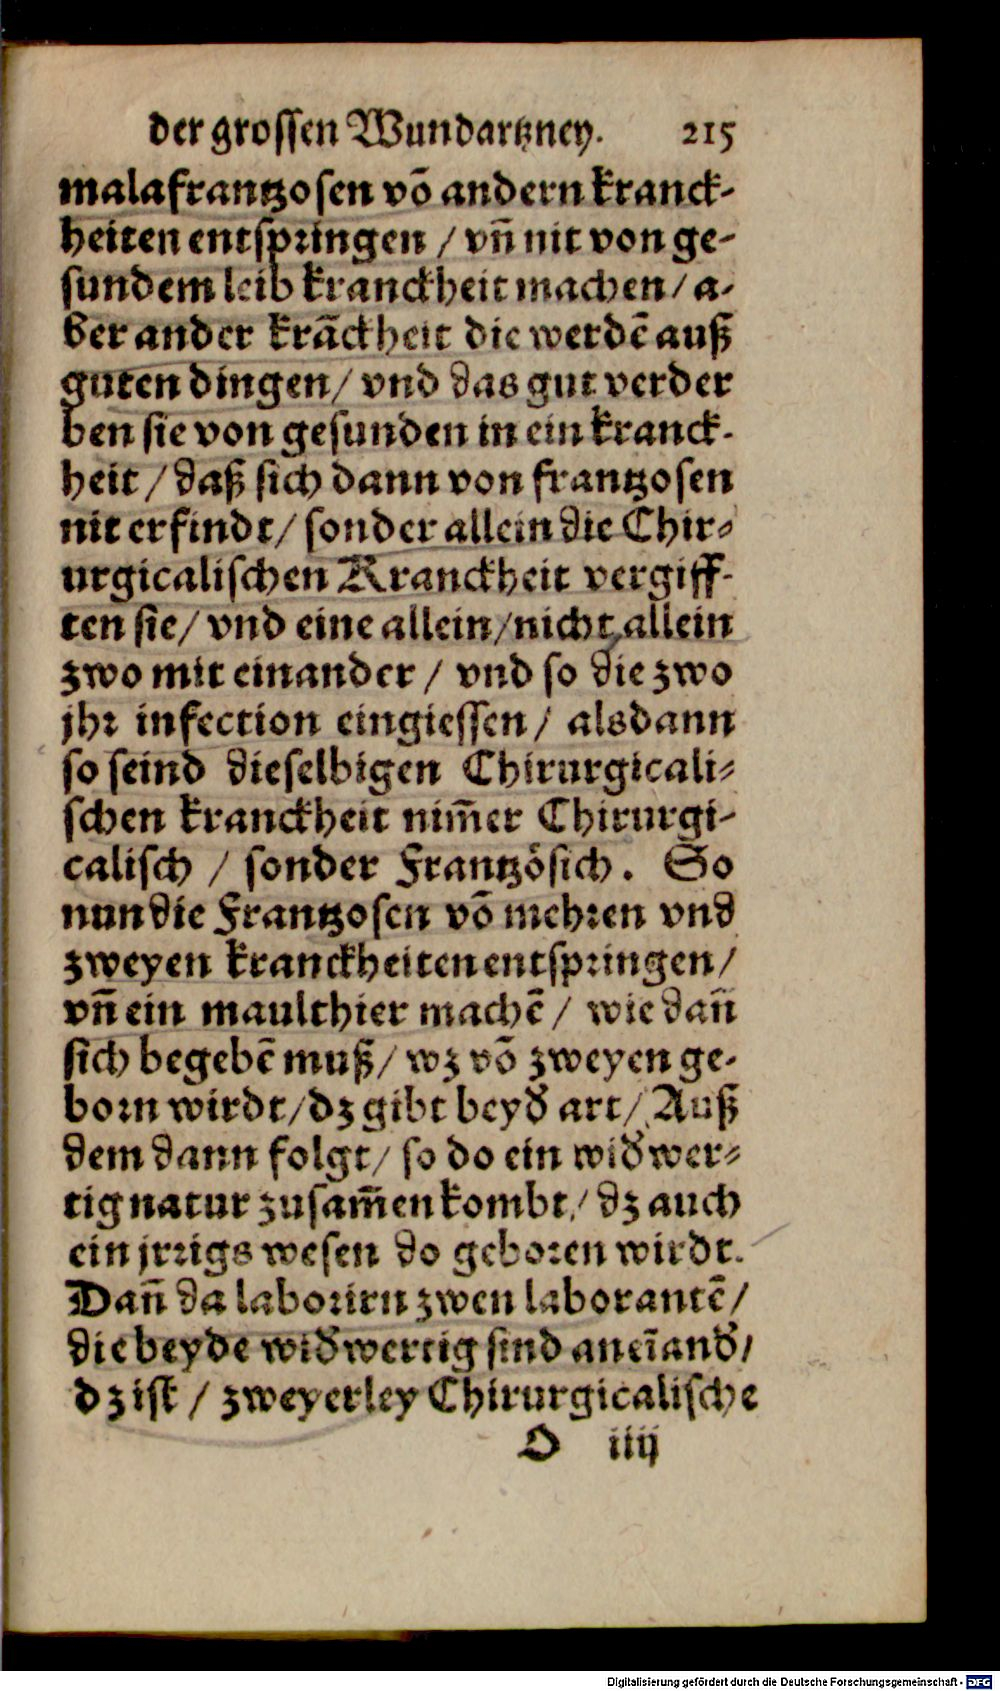 der grossen Wundartzney. 215
malafrantzosen võ andern kranck-
heiten entspringen / vñ nit von ge-
sundem leib kranckheit machen / a-
ber ander krãckheit die werdẽ auß
guten dingen / vnd das gut verder
ben sie von gesunden in ein kranck-
heit / daß sich dann von frantzosen
nit erfindt / sonder allein die Chir-
urgicalischen Kranckheit vergiff-
ten sie / vnd eine allein / nicht allein
zwo mit einander / vnd so die zwo
jhr infection eingiessen / alsdann
so seind dieselbigen Chirurgicali-
schen kranckheit nim̃er Chirurgi-
calisch / sonder Frantzösich. So
nun die Frantzosen võ mehren vnd
zweyen kranckheiten entspringen /
vñ ein maulthier machẽ / wie dañ
sich begebẽ muß / wz võ zweyen ge-
born wirdt / dz gibt beyd̕ art / Auß
dem dann folgt / so do ein wid̕wer-
tig natur zusam̃en kombt / dz auch
ein jrrigs wesen do geboren wirdt.
Dañ da laborirn zwen laborantẽ /
die beyde wid̕wertig sind aneĩand̕ /
dz ist / zweyerley Chirurgicalische
O iiij
Digitalisierung gefördert durch die Deutsche Forschungsgemeinschaft - DFG